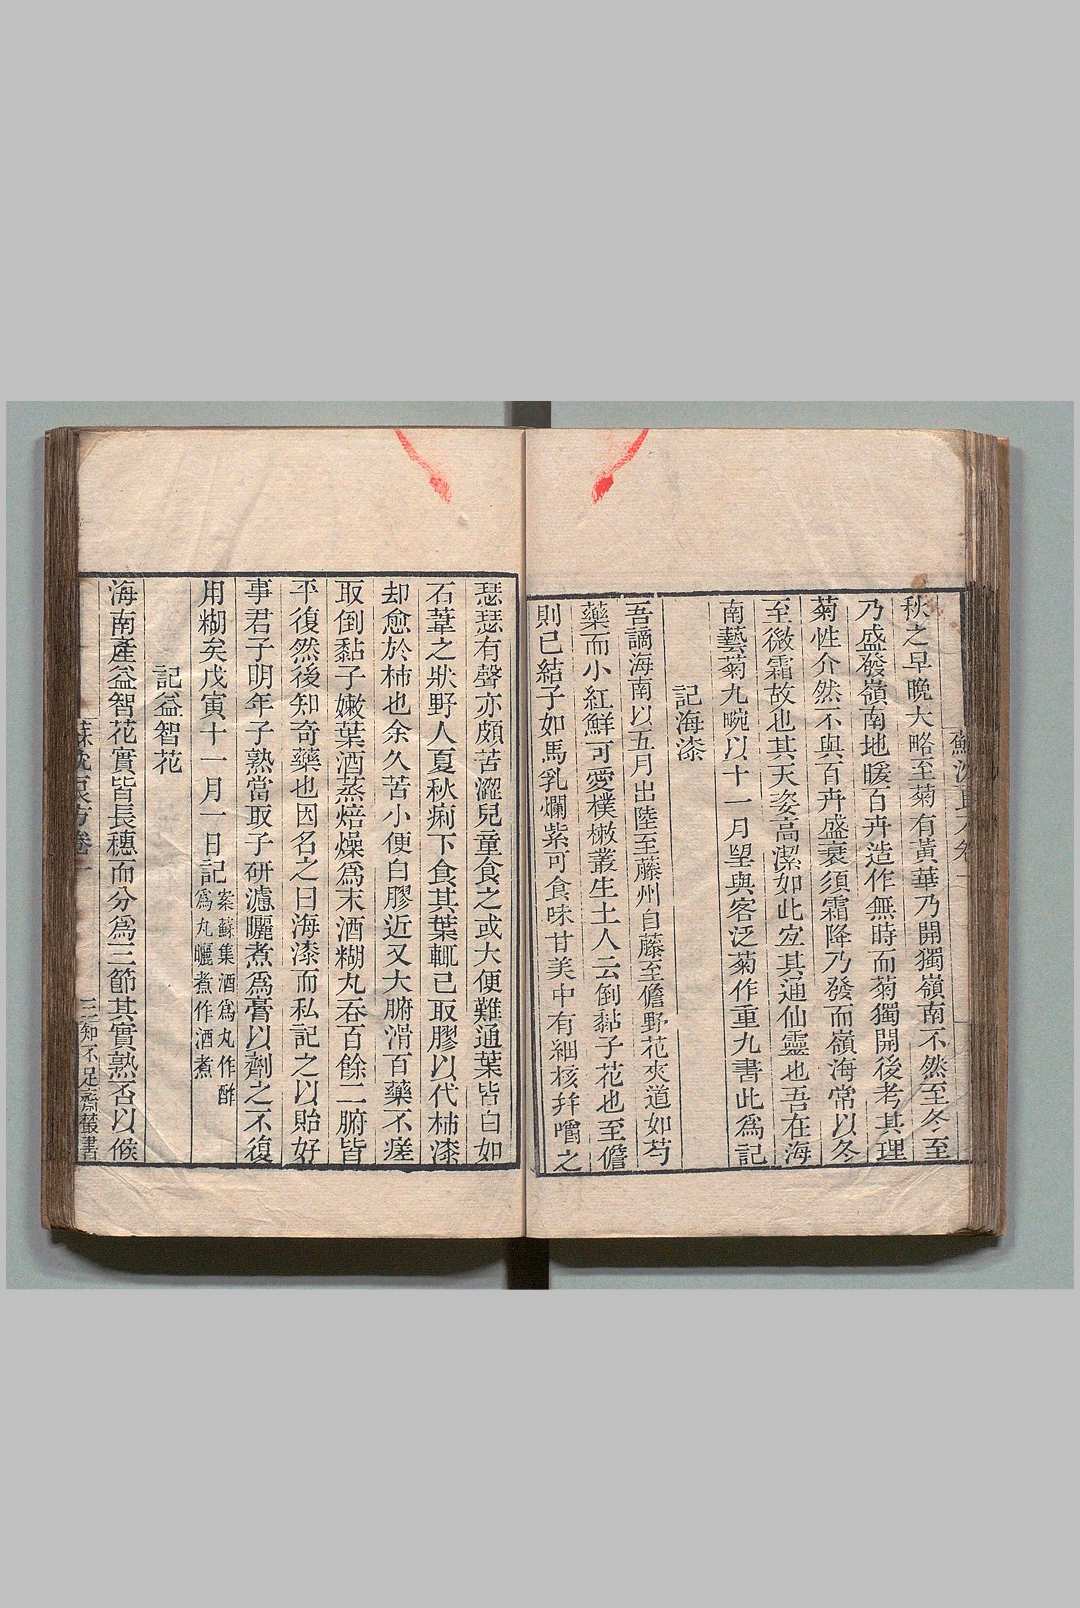 秋之早晚大略至菊有黃華乃開獨嶺南不然至冬至
乃盛發嶺南地暖百卉造作無時而菊獨開後考其理
菊性介然不與百卉盛衰須霜降乃發而嶺海常以冬
至微霜故也其天姿高潔如此宜其通仙靈也吾在海
南藝菊九畹以十一月望與客泛菊作重九書此爲記
記海漆
吾謫海南以五月出陸至藤州自藤至儋野花夾道如芍
藥而小紅鮮可愛樸樕叢生土人云倒黏子花也至儋
則已結子如馬乳爛紫可食味甘美中有細核幷嚼之
瑟瑟有聲亦頗苦澀兒童食之或大便難通葉皆白如
石葦之狀野人夏秋痢下食其葉輒已取膠以代柿漆
却愈於柿也余久苦小便白膠近又大腑滑百藥不瘥
取倒黏子嫩葉酒蒸焙燥爲末酒糊丸吞百餘二腑皆
平復然後知奇藥也因名之曰海漆而私記之以貽好
事君子明年子熟當取子研濾曬煮爲膏以劑之不復
用糊矣戊寅十一月一日記
案蘇集酒爲丸作酢
爲丸曬煮作酒煮
記益智花
海南產益智花實皆長穗而分爲三節其實熟否以候
蘇沈良方卷一
三
知不足齋叢書